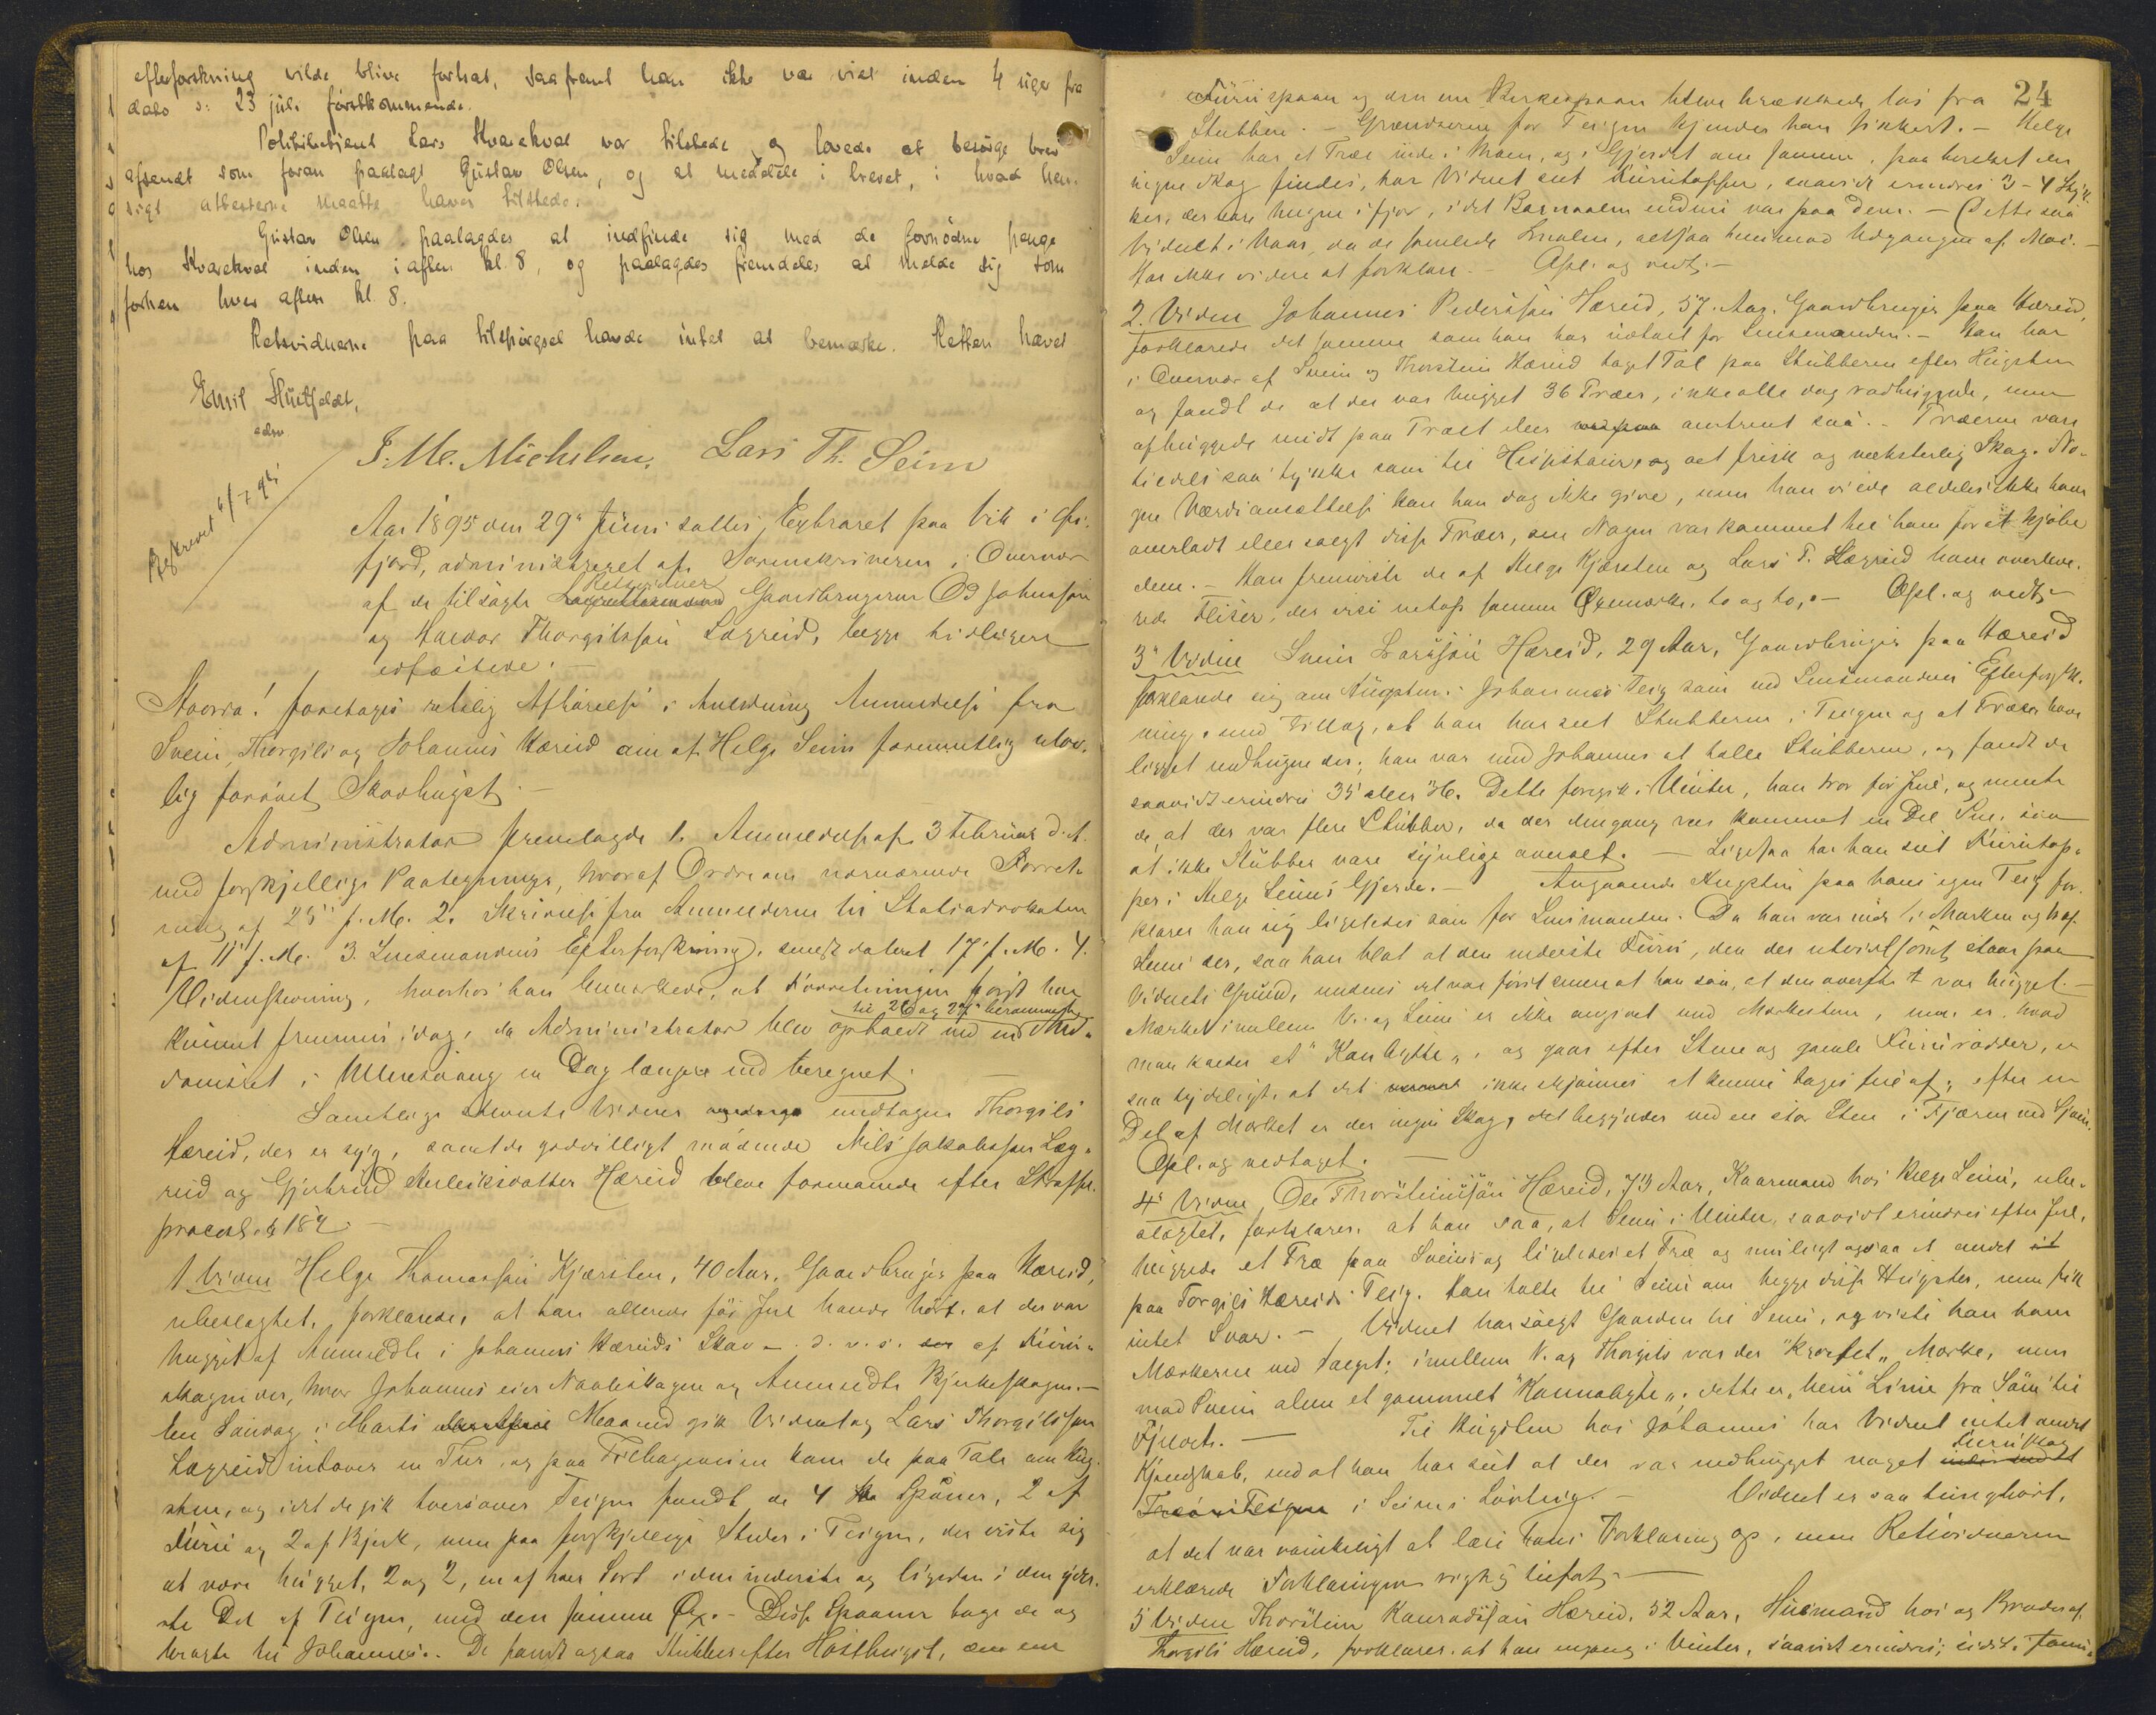 efterforskning vilde blive forlat, saafremt han ikke var viet inden 4 uger fra
dato o: 23 juli førstkommende.
Politibetjent Lars Kvarekval var tilstede og lovede at besørge brev
afsendt som foran paalagt Gustav Olsen, og at meddele i brevet, i hvad hen-
sigt attesterne maatte haves tilstede.
Gustav Olsen paalagdes at indfinde sig med de fornødne penge
hos Kvarekval inden iaften kl. 8, og paalagdes fremdeles at melde sig som
forhen hver aften kl. 8.
Retsvidnerne paa tilspørgsel havde intet at bemærke. Retten hævet
Emil Huitfeldt,
edsv.
J. M. Michelsen. Lars Th. Seim
Beskrevet 6/7 95
Aar 1895 den 29de Juni sattes Extraret paa Vik i Eid-
fjord, administreret af Sorenskriveren i Overvær
af de tilsagte Retsvidner Gaardbrugerne Od Johnssøn
og Halvor Thorgilssøn Lægreid, begge tidligere
edfæstede.
Hvorda! foretoges retslig Afhørelse i Anledning Anmeldelse fra
Svein, Thorgils og Johannes Hæreid om af Helge Seim formentlig ulov-
lig forøvet Skovhugst.
Administrator fremlagde 1. Anmeldelse af 3 Februar d. A.
med forskjellige Paategninger, hvoraf Ordre om nærværende Forret-
ning af 25 f. M. 2. Skrivelse fra Anmelderne til Statsadvokaten
af 11 f. M. 3. Lensmandens Efterforskning, senest dateret 17 f. M. 4.
Vidnestevning, hvorhos han bemærkede, at Forretningen først har
kunnet fremmes idag, da Administrator blev opholdt ved en Med-
til 26 og 27 berammet
domsret i Ullensvang en Dag længere end beregnet.
Samtlige stevnte Vidner undtagen Thorgils
Hæreid, der er syg, samt de godvilligt mødende Nils Jakobssen Læg-
reid og Gjertrud Herleiksdatter Hæreid bleve formanede efter Straffe-
proceslov § 189.
1 Vidne Helge Thomassøn Kjærsten, 40 Aar, Gaardbruger paa Hæreid,
ubeslægtet, forklarede, at han allerede før Jul havde hørt, at der var
hugget af Anmeldte i Johannes Hæreids Skov – d. v. s. af Furu-
skagen der, hvor Johannes eier Naaleskagen og Anmeldte Bjerkeskagen.–
En Søndag i Marts Maaned gik Vidnet og Lars Thorgilssøn
Lægreid indover en Tur, og paa Tilbageveien kom de paa Tale om Hug-
sten, og idet de gik tversover Teigen fandt de 4 Spåner, 2 af
Furu og 2 af Bjerk, men paa forskjellige Steder i Teigen, der viste sig
at være hugget, 2 og 2, en af hver Sort i den inderste og ligedan i den yder-
ste Del af Teigen, med den samme Øx.– Disse Spaaner toge de og
bragte til Johannes. De fandt ogsaa Stubber efter Høsthugst, den ene
24
Furuspaan og den ene Birkespaan bleve hækkede løs fra
Stubben.– Grændserne for Teigen kjender han sikkert.– Helge
Seim har et Træe inde i Moen, og i Gjerdet om samme, paa hvilket der
ingen Skog findes, har Vidnet seet Furutopper, saavidt erindres 3-4 Styk-
ker, der vare hugne ifjor, idet Barnaalen endnu var paa dem.– Dette saa
Vidnet i Vaar, da de samlede Smalen, altsaa henimod Udgangen af Mai.–
Har ikke videre at forklare.– Opl. og vedt.–
2. Vidne Johannes Pederssøn Hæreid, 57 Aar, Gaardbruger paa Hæreid,
forklarede det samme som han har udtalt for Lensmanden.– Han har
i Overvær af Svein og Thorstein Hæreid taget Tal paa Stubberne efter Hugsten
og fandt de at der var hugget 36 Træer, ikke alle dog rodhuggede, men
afhuggede midt paa Træet eller omtrent saa.– Træerne vare
tildels saa tykke som til Hesjestaur, og det frisk og væksterlig Skog. No-
gen Værdiansættelse kan han dog ikke give, men han vilde aldeles ikke have
overladt eller solgt disse Træer, om Nogen var kommet til ham for at kjøbe
dem.– Han fremviste de af Helge Kjærsten og Lars T. Lægreid ham overleve-
rede Fliser, der vise netop samme Øxemærke, to og to.– Opl. og vedt.–
3die Vidne Svein Larssøn Hæreid, 29 Aar, Gaardbruger paa Hæreid
forklarede sig om Hugsten i Johannes Teig som ved Lensmandens Efterforsk-
ning, med Tillæg, at han har seet Stubberne i Teigen og at Træer have
ligget nedhugne der; han var med Johannes at tælle Stubberne, og fandt de
saavidt erindres 35 eller 36. Dette foregik i Vinter, han tror før Jul, og mente
de, at der var flere Stubber, da der dengang var kommet en Del Sne, saa
at ikke Stubber vare synlige overalt.– Ligesaa har han seet Furutop-
per i Helge Seims Gjerde.– Angaaende Hugsten paa hans egen Teig for-
klarer han sig ligeledes som for Lensmanden. Da han var inde i Marken og traf
Seim der, saa han blot at den nederste Furu, den der utvivlsomt staar paa
Vidnets Grund, medens det var først senere at han saa, at den øverste var hugget.–
Mærket imellem V. og Seim er ikke angivet med Markesten, men er, hvad
man kalder et "Kanbytte", og gaar efter Stene og gamle Furuvodder, er
saa tydeligt, at det ikke skjønnes at kunne tages feil af; efter en
Del af Mærket er der ingen Skog, det begynder ved en stor Sten i Fjæren ved Sjøen.
Opl. og vedtaget.
4de Vidne Ole Thorsteinssøn Hæreid, 73 Aar, Kaarmand hos Helge Seim, ube-
slægtet, forklarer, at han saa, at Seim i Vinter, saavidt erindres efter Jul,
huggede et Træ paa Sveins og ligeledes et Træ og muligt ogsaa et andet
paa Torgils Hæreids Teig. Han talte til Seim om begge disse Hugster, men fik
intet Svar.– Vidnet har solgt Gaarden til Seim, og viste han ham
Mærkerne ved Salget; imellem V. og Thorgils var der "krosset" Mærke, men
mod Svein alene et gammelt "Kannabyte", dette er "bein" Linie fra Søen til
Fjeldet.– Til Hugsten hos Johannes har Vidnet intet andet
Kjendskab, end at han har seet at der var nedhugget noget Furuskog
i Seims Løvteig.– Vidnet er saa tunghørt,
at det var vanskeligt at læse hans Forklaring op, men Retsvidnerne
erklærede Forklaringen rigtig tilført.–
5 Vidne Thorstein Konradssøn Hæreid, 52 Aar, Husmand hos og Broder af
Thorgils Hæreid, forklarer, at han engang i Vinter, saavidt erindres, sidst i Janu-